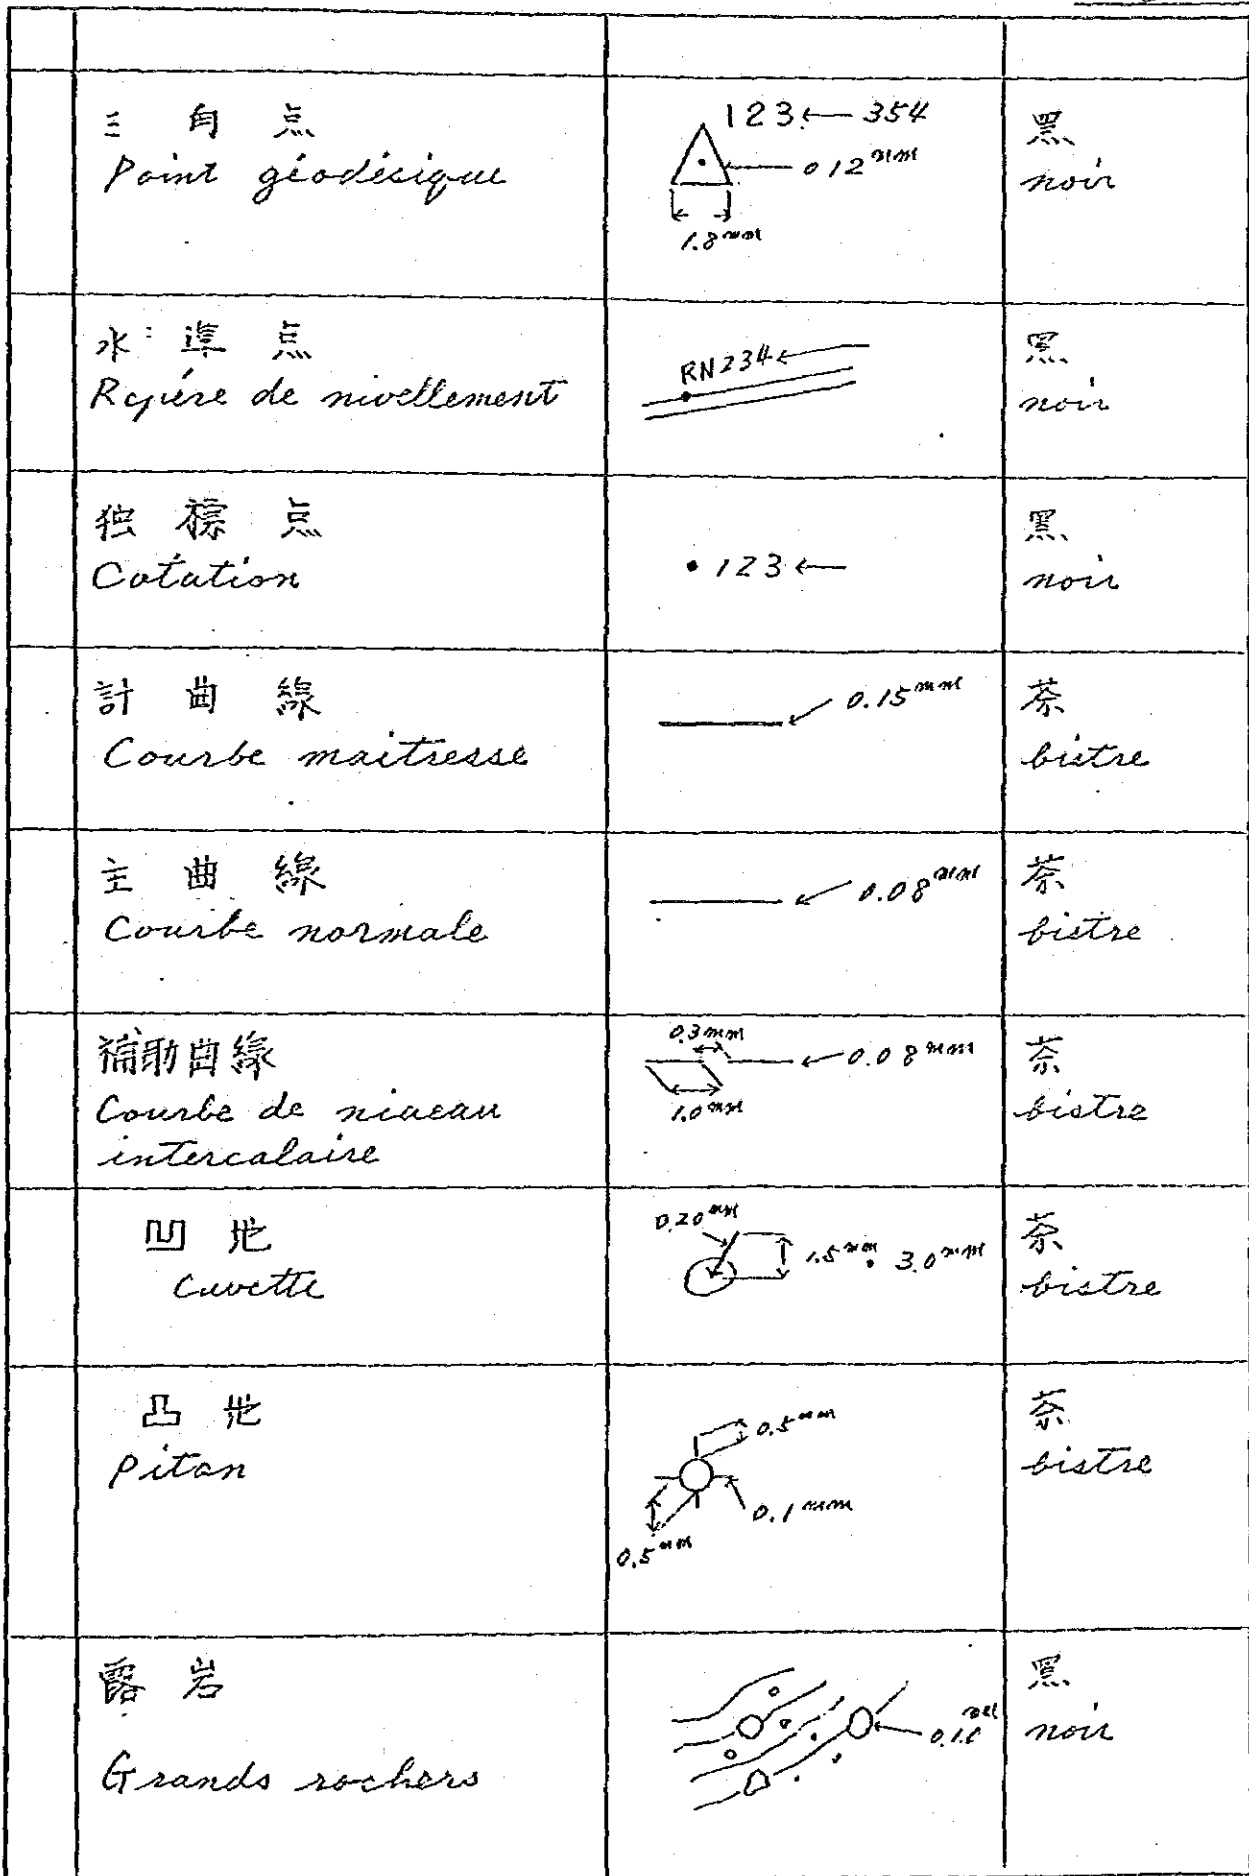 三角点
Point géodésique
123 ← 354
0.12mm
1.8mm
黒
noir
水準点
Repére de nivellement
RN234
黒
noir
独標点
Cotation
• 123
黒
noir
計曲線
Courbe maitresse
0.15mm
茶
bistre
主曲線
Courbe normale
0.08mm
茶
bistre
補助曲線
Courbe de niveau
intercalaire
0.3mm
0.08mm
1.0mm
茶
bistre
凹地
Cuvette
0.20mm
1.5mm • 3.0mm
茶
bistre
凸地
Piton
0.5mm
0.1mm
0.5mm
茶
bistre
露岩
Grands rochers
黒
noir